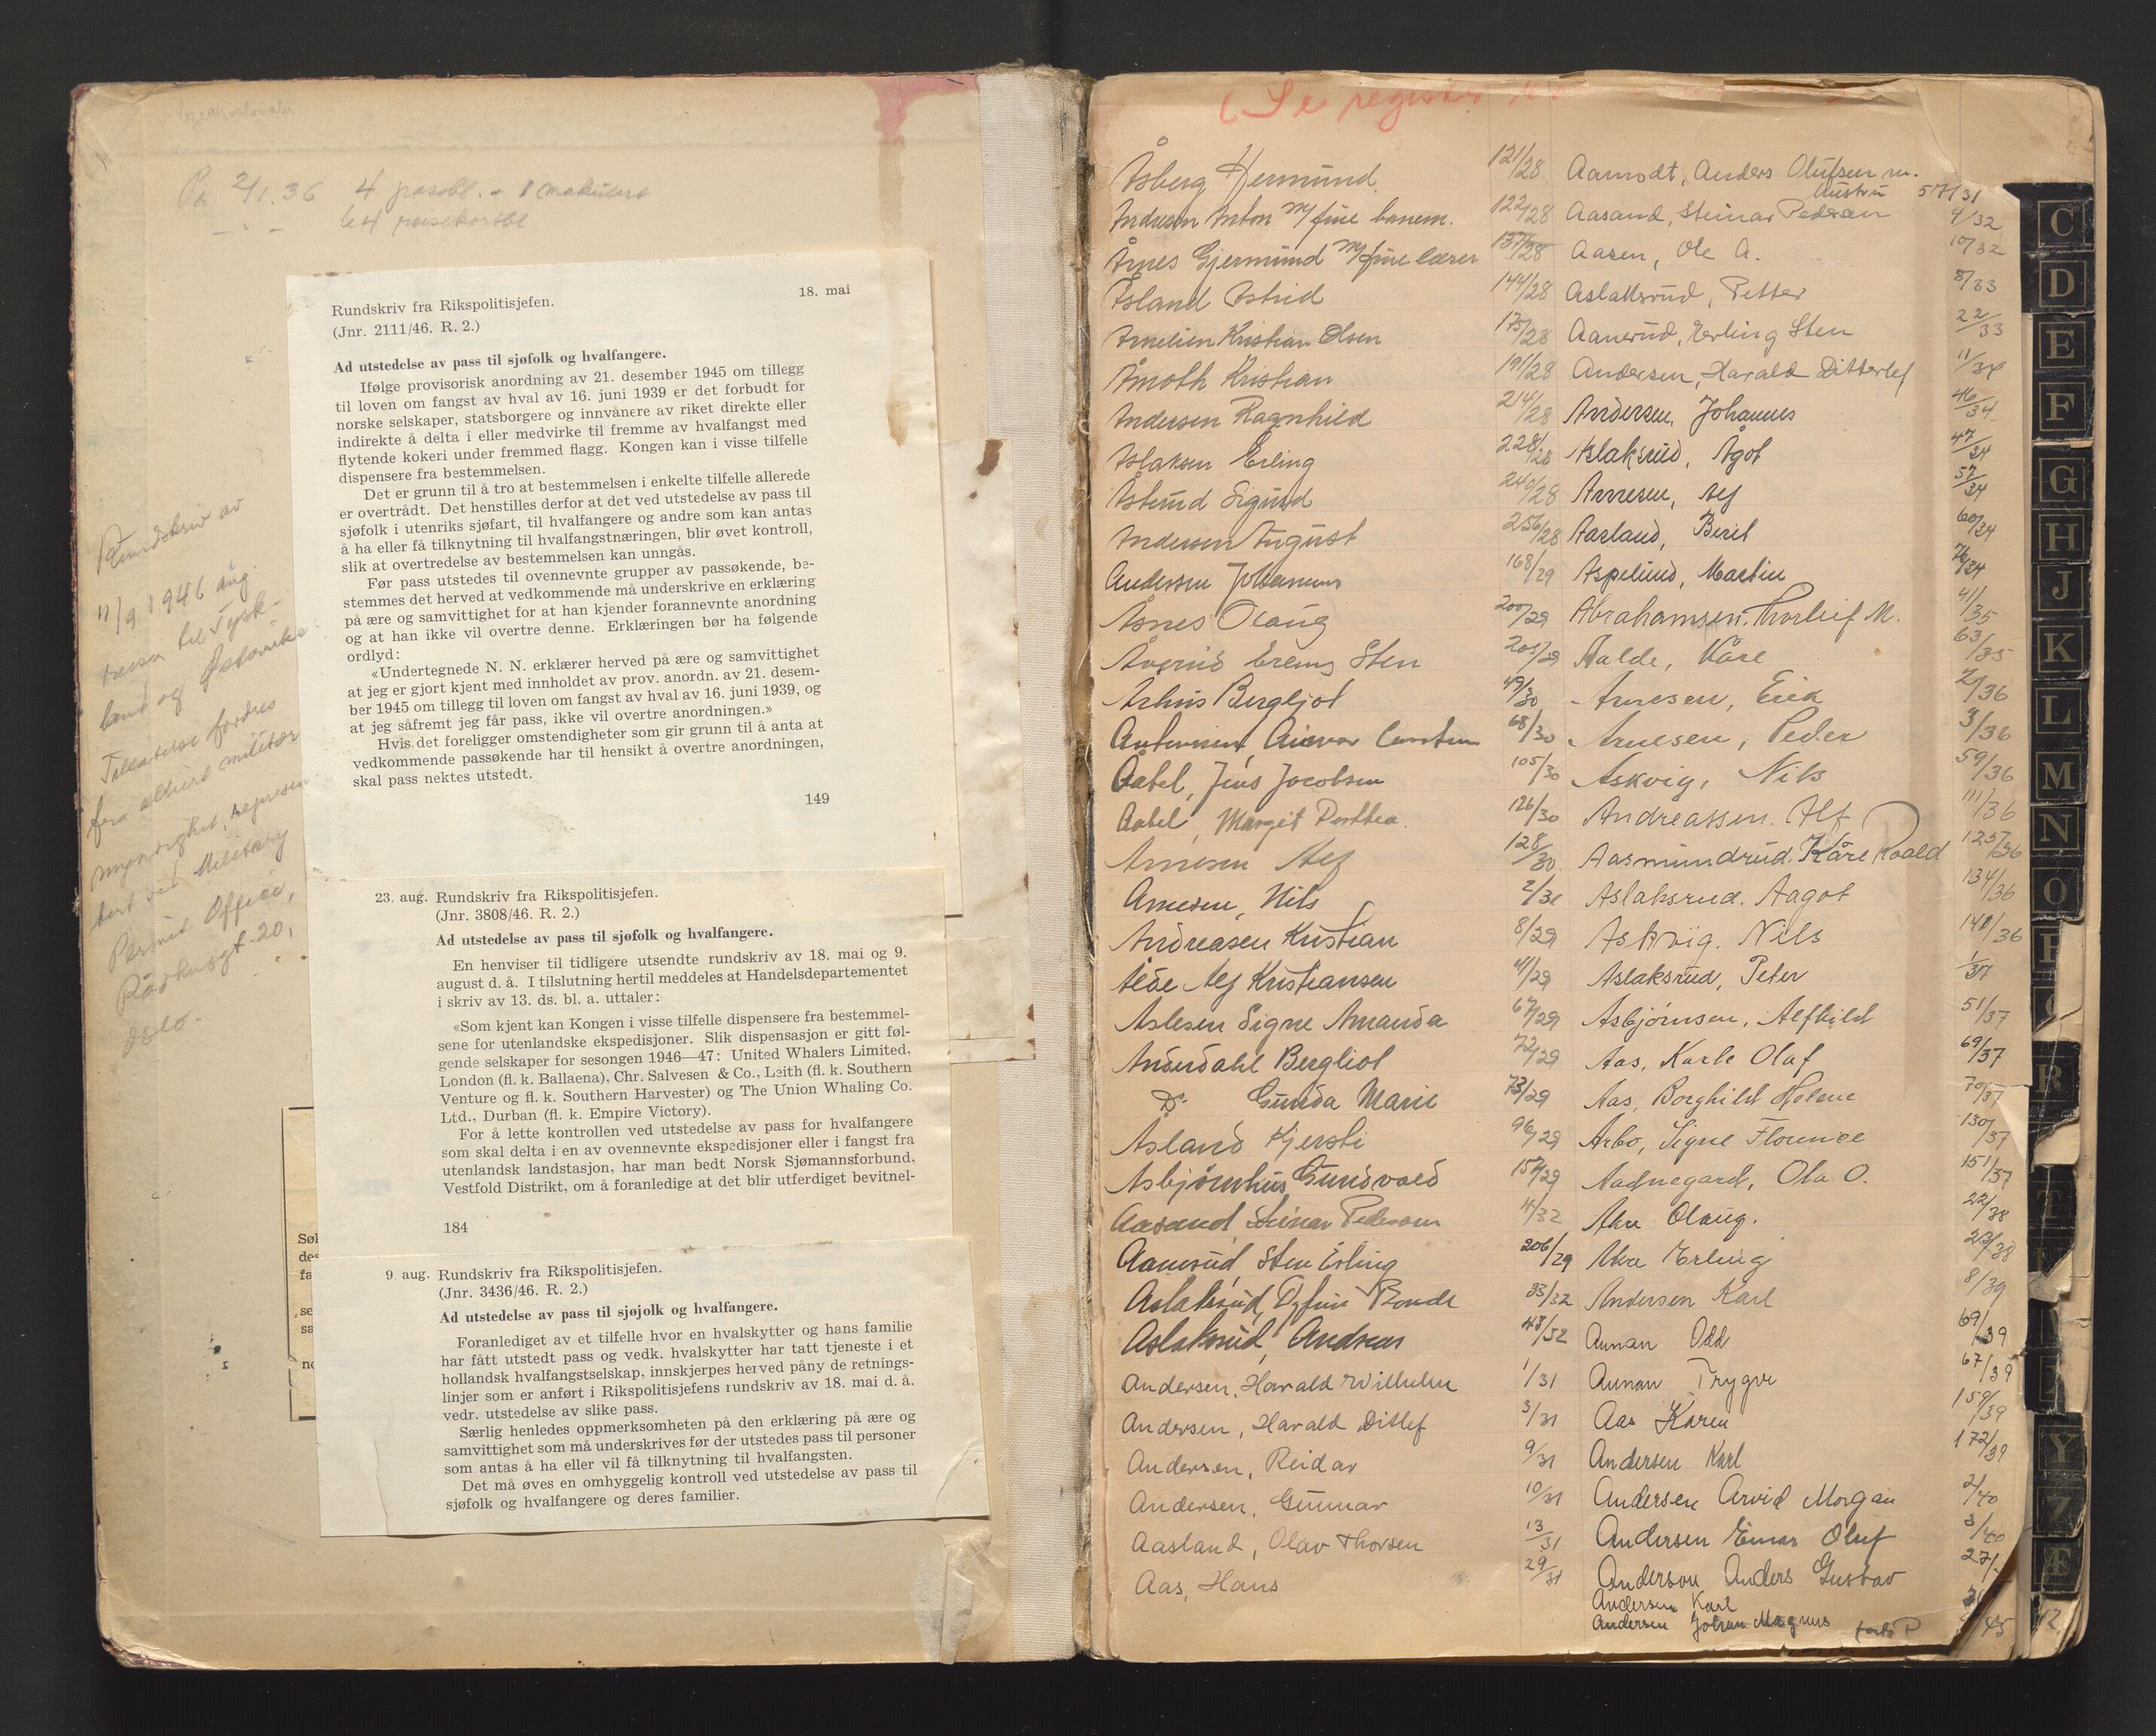 Pr. 2/1.36 4 passbl. + 1 makulert
64 reisekortbl.
Rundskriv av
11/9 1946 ang.
reiser til Tysk-
land og Østerrike
Tillatelse fordres
fra alliert militær
myndighet, represen
tert ved Military
Permit Office,
Rådhusgt 20,
Oslo.
18. mai
Rundskriv fra Rikspolitisjefen.
(Jnr. 2111/46. R. 2.)
Ad utstedelse av pass til sjøfolk og hvalfangere.
Ifølge provisorisk anordning av 21. desember 1945 om tillegg
til loven om fangst av hval av 16. juni 1939 er det forbudt for
norske selskaper, statsborgere og innvånere av riket direkte eller
indirekte å delta i eller medvirke til fremme av hvalfangst med
flytende kokeri under fremmed flagg. Kongen kan i visse tilfelle
dispensere fra bestemmelsen.
Det er grunn til å tro at bestemmelsen i enkelte tilfelle allerede
er overtrådt. Det henstilles derfor at det ved utstedelse av pass til
sjøfolk i utenriks sjøfart, til hvalfangere og andre som kan antas
å ha eller få tilknytning til hvalfangstnæringen, blir øvet kontroll,
slik at overtredelse av bestemmelsen kan unngås.
Før pass utstedes til ovennevnte grupper av passøkende, be-
stemmes det herved at vedkommende må underskrive en erklæring
på ære og samvittighet for at han kjender forannevnte anordning
og at han ikke vil overtre denne. Erklæringen bør ha følgende
ordlyd:
«Undertegnede N. N. erklærer herved på ære og samvittighet
at jeg er gjort kjent med innholdet av prov. anordn. av 21. desem-
ber 1945 om tillegg til loven om fangst av hval av 16. juni 1939, og
at jeg såfremt jeg får pass, ikke vil overtre anordningen.»
Hvis det foreligger omstendigheter som gir grunn til å anta at
vedkommende passøkende har til hensikt å overtre anordningen,
skal pass nektes utstedt.
149
23. aug. Rundskriv fra Rikspolitisjefen.
(Jnr. 3808/46. R. 2.)
Ad utstedelse av pass til sjøfolk og hvalfangere.
En henviser til tidligere utsendte rundskriv av 18. mai og 9.
august d. å. I tilslutning hertil meddeles at Handelsdepartementet
i skriv av 13. ds. bl. a. uttaler:
«Som kjent kan Kongen i visse tilfelle dispensere fra bestemmel-
sene for utenlandske ekspedisjoner. Slik dispensasjon er gitt føl-
gende selskaper for sesongen 1946—47: United Whalers Limited,
London (fl. k. Ballaena), Chr. Salvesen & Co., Leith (fl. k. Southern
Venture og fl. k. Southern Harvester) og The Union Whaling Co.
Ltd., Durban (fl. k. Empire Victory).
For å lette kontrollen ved utstedelse av pass for hvalfangere
som skal delta i en av ovennevnte ekspedisjoner eller i fangst fra
utenlandsk landstasjon, har man bedt Norsk Sjømannsforbund,
Vestfold Distrikt, om å foranledige at det blir utferdiget bevitnel-
184
9. aug. Rundskriv fra Rikspolitisjefen.
(Jnr. 3436/46. R. 2.)
Ad utstedelse av pass til sjøjolk og hvalfangere.
Foranlediget av et tilfelle hvor en hvalskytter og hans familie
har fått utstedt pass og vedk. hvalskytter har tatt tjeneste i et
hollandsk hvalfangstselskap, innskjerpes herved påny de retnings-
linjer som er anført i Rikspolitisjefens rundskriv av 18. mai d. å.
vedr. utstedelse av slike pass.
Særlig henledes oppmerksomheten på den erklæring på ære og
samvittighet som må underskrives før der utstedes pass til personer
som antas å ha eller vil få tilknytning til hvalfangsten.
Det må øves en omhyggelig kontroll ved utstedelse av pass til
sjøfolk og hvalfangere og deres familier.
Søl
des
fa
se
sa
no
(Se register
Åsberg Hermund 121/28
Andresen Anton m/ fine banem. 122/28
Årnes Gjermund m/ fine lærer 137/28
Åsland Astrid 144/28
Arnelien Kristian Olsen 175/28
Åmoth Kristian 191/28
Andersen Ragnhild 214/28
Aslaksen Erling 228/28
Åslund Sigurd 240/28
Andersen August 256/28
Andersen Johannes 168/29
Åsnes Olaug 200/29
Sten 205/29
Århus Bergljot 49/30
Antonsen, 68/30
Aabel, Jens Jacobsen 105/30
Aabel, Margit Dorthea 126/30
Arnesen Alf 128/30
Arnesen, Nils 2/30
Andreasen Kristian 8/29
Alde Alf Kristiansen 41/29
Aslesen Signe Amanda 67/29
Anderdahl Bergliot 72/29
Do Gunda Marie 73/29
Åsland Kjersti 96/29
Asbjørnhus Gundvald 157/29
Aasand, Steinar Pedersen 4/32
Aanerud, Sten Erling 206/29
Aslaksrud, Dyfrin Bonde 33/32
Aslaksrud, Andreas 43/32
Andersen, Harald Wilhelm 1/31
Andersen, Harald Ditlef 3/31
Andersen, Reidar 9/31
Andersen, Gunnar 10/31
Aasland, Olav Thorsen 13/31
Aas, Hans 29/31
Aamodt, Anders Olufsen m.
hustru 57/31
Aasand, Steinar Pedersen 9/32
Aasen, Ole A. 10/32
Aslaksrud, Petter 8/33
Aanerud, Erling Sten 22/33
Andersen, Harald Ditterlef 11/34
Andersen, Johannes 46/34
Aslaksrud, Ågot 47/34
Arnesen, Alf 57/34
Aasland, Berit 60/34
Aspelund, Martin 76/34
Abrahamsen, Thorleif M. 41/35
Aalde, Kåre 63/35
Arnesen, Erik 2/36
Arnesen, Peder 3/36
Askvig, Nils 59/36
Andreassen. Alf 111/36
Aasmundrud. Kåre Roald 125/36
Aslaksrud. Aagot 134/36
Askvig. Nils 148/36
Aslaksrud, Peter 1/37
Asbjørnsen, Alfhild 51/37
Aas, Karle Olaf 69/37
Aas, Borghild Helene 70/37
Arbo, Signe Florence 130/37
Aadnegard, Ola O. 151/37
Aker Olaug. 22/38
Aker Erling 213/38
Andersen Karl 8/39
Annan Odd 69/39
Annan Trygve 67/39
Aas Karen 159/39
Andersen Karl 172/39
Andersen Arvid Morgan 2/40
Andersen Einar Oluf 3/40
Anderson Anders Gustav 27/
Andersen Karl
Andersen Johan Magnus /45
C
D
E
F
G
H
J
K
L
M
N
O
P
R
T
Y
Z
Æ